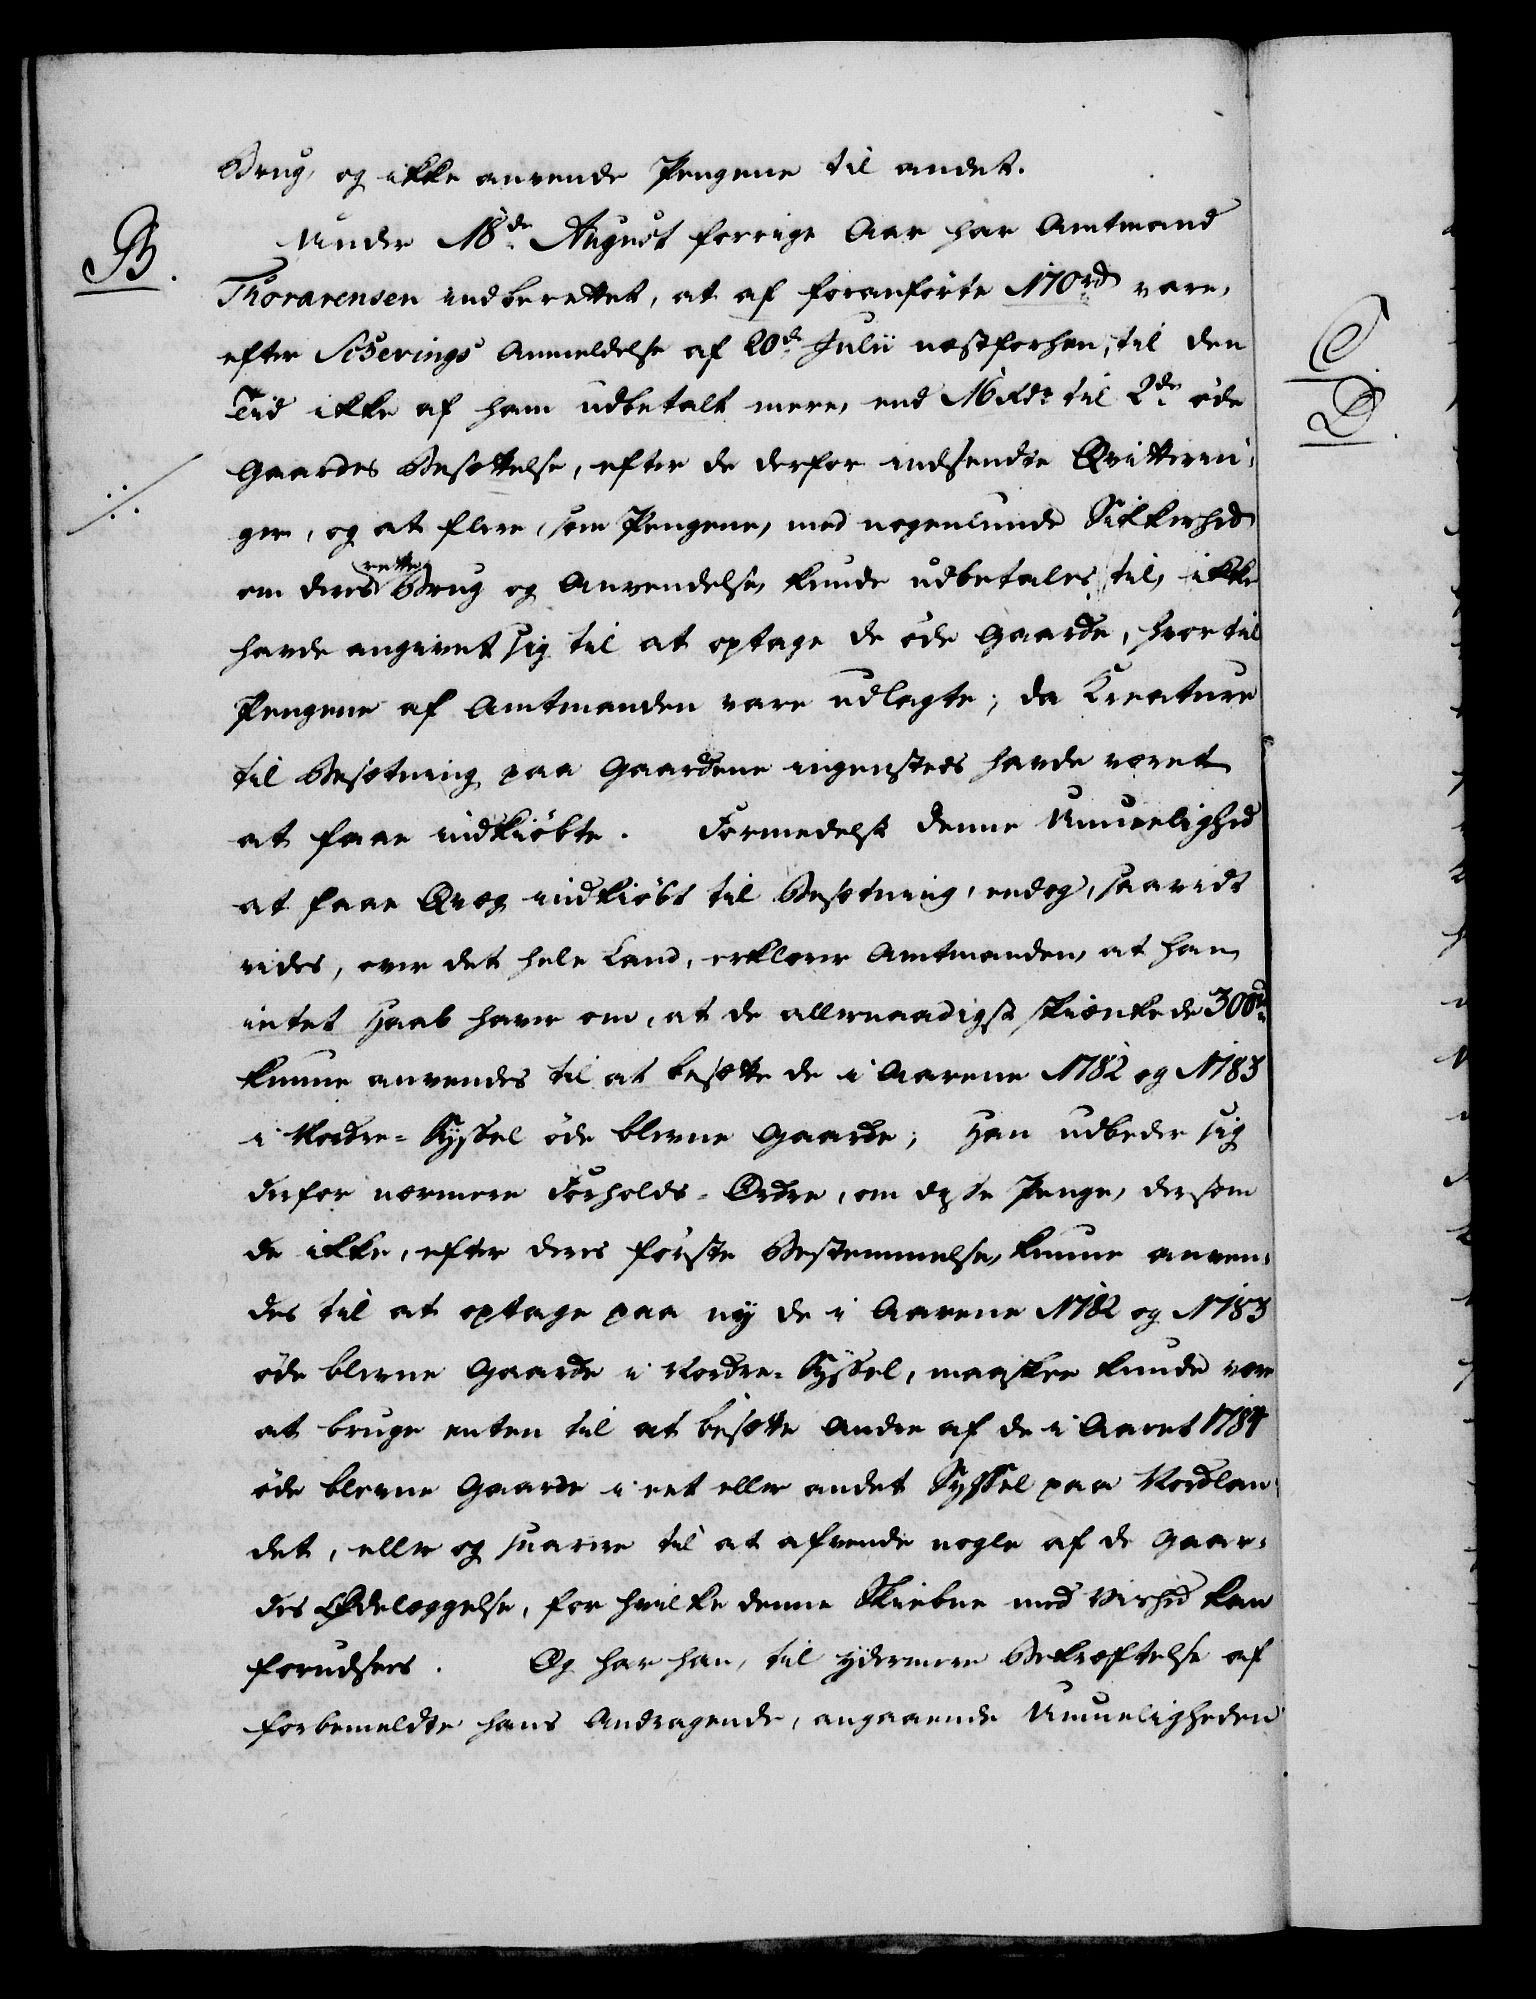 Brug, og ikke anvende Pengene til andet.
B.
Under 18de August forrige Aar har Amtmand
Thorarensen indberettet, at af foranførte 170rd vare,
efter Schevings Anmeldelse af 20de Julii næstforhen, til den
Tid ikke af ham udbetalt mere, end 16 Rdr til 2de øde
Gaardes Besættelse, efter de derfor indsendte Qvitterin¬
ger, og at flere, som Pengene, med nogenlunde Sikkerhed
om deres rette Brug og Anvendelse, kunde udbetales til, ikke
havde angivet sig til at optage de øde Gaarde, hvortil
Pengene af Amtmanden vare udlagte; da Creature
til Besætning paa Gaardene ingensteds havde været
at faae indkiøbte. Formedelst denne Umuelighed
at faae Qvæg indkiøbt til Besætning, endog, saavidt
vides, over det hele Land, erklærer Amtmanden, at han
intet Haab haver om, at de allernaadigst skiænkede 300rd
kunne anvendes til at besætte de i Aarene 1782 og 1783
i Nordre-Syssel øde blevne Gaarde; Han udbeder sig
derfor nærmere Forholds-Ordre, om disse Penge, dersom
de ikke, efter deres første Bestemmelse, kunne anven¬
des til at optage paa ny de i Aarene 1782 og 1783
øde blevne Gaarde i Nordre-Syssel, maaskee kunde være
at bruge enten til at besætte Andre af de i Aaret 1784
øde blevne Gaarde i eet eller andet Syssel paa Nordlan¬
det, eller og snarere til at afvende nogle af de Gaar¬
des Ødelæggelse, for hvilke denne Skiebne med Vished kan
forudsees. Og har han, til ydermere Bekræftelse af
forbemeldte hans Andragende, angaaende Umueligheden
C.
D.